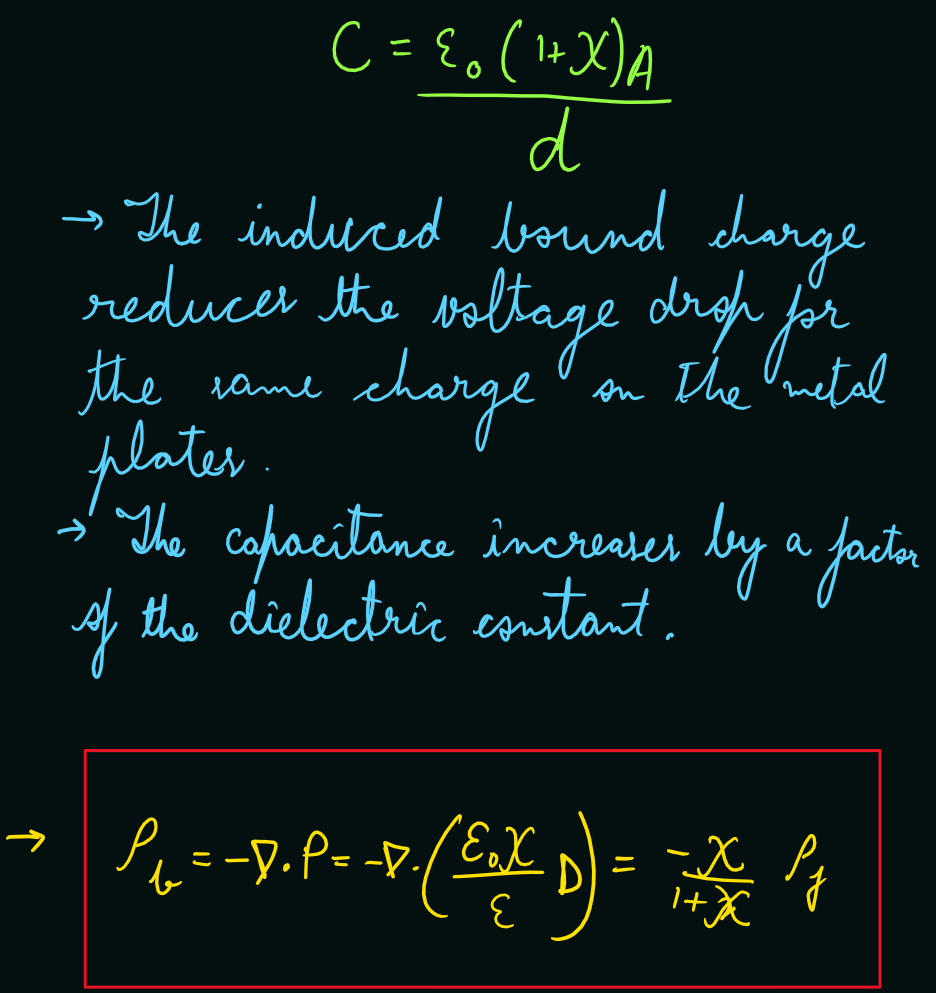 C = ε₀(1+χ)A
d
→ The induced bound charge
reduces the voltage drop for
the same charge on the metal
plates.
→ The capacitance increases by a factor
of the dielectric constant.
→ ρ_b = -∇.P = -∇.(ε₀χ/ε D) = -χ/1+χ ρ_f